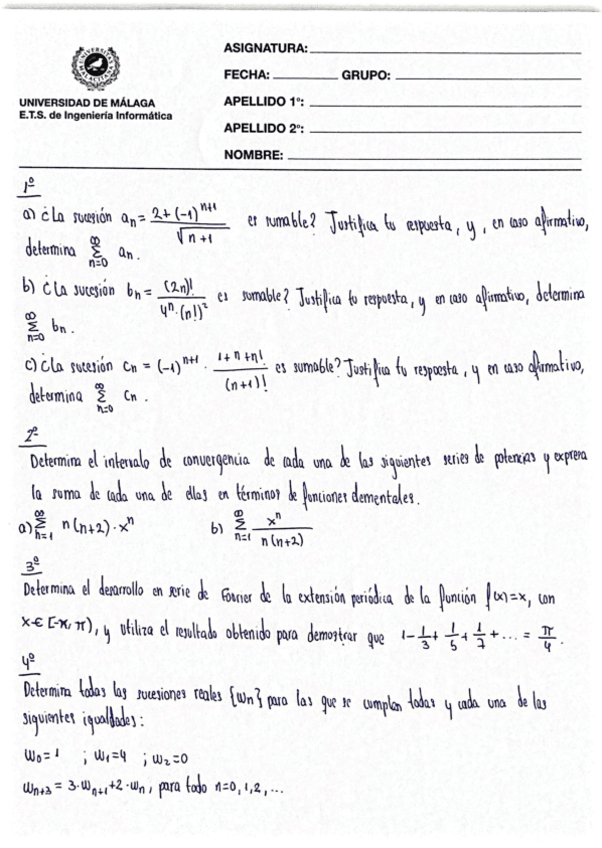 ASIGNATURA:
FECHA: GRUPO:
UNIVERSIDAD DE MÁLAGA
E.T.S. de Ingeniería Informática
APELLIDO 1º:
APELLIDO 2º:
NOMBRE:
1º
a) ¿La sucesión aₙ = (2+(-1)ⁿ⁺¹)/√(n+1) es sumable? Justifica tu respuesta, y, en caso afirmativo,
determina ∑_{n=0}^{∞} aₙ.
b) ¿La sucesión bₙ = (2n)!/(4ⁿ·(n!)²) es sumable? Justifica tu respuesta, y en caso afirmativo, determina
∑_{n=0}^{∞} bₙ.
c) ¿La sucesión cₙ = (-1)ⁿ⁺¹ · (1+n+n!)/(n+1)! es sumable? Justifica tu respuesta, y en caso afirmativo,
determina ∑_{n=0}^{∞} cₙ.
2º
Determina el intervalo de convergencia de cada una de las siguientes series de potencias y expresa
la suma de cada una de ellas en términos de funciones elementales.
a) ∑_{n=1}^{∞} n(n+2)·xⁿ b) ∑_{n=1}^{∞} xⁿ/(n(n+2))
3º
Determina el desarrollo en serie de Fourier de la extensión periódica de la función f(x)=x, con
x∈[-π, π), y utiliza el resultado obtenido para demostrar que 1-1/3+1/5+1/7+... = π/4.
4º
Determina todas las sucesiones reales {wₙ} para las que se cumplan todas y cada una de las
siguientes igualdades:
w₀=1 ; w₁=4 ; w₂=0
wₙ₊₃ = 3·wₙ₊₁+2·wₙ, para todo n=0,1,2,...